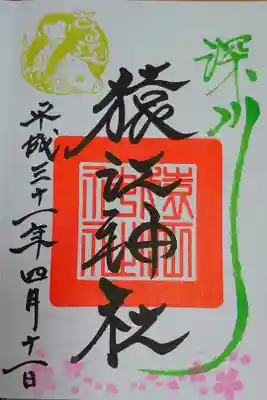 深川
猿江神社
平成三十一年四月十一日